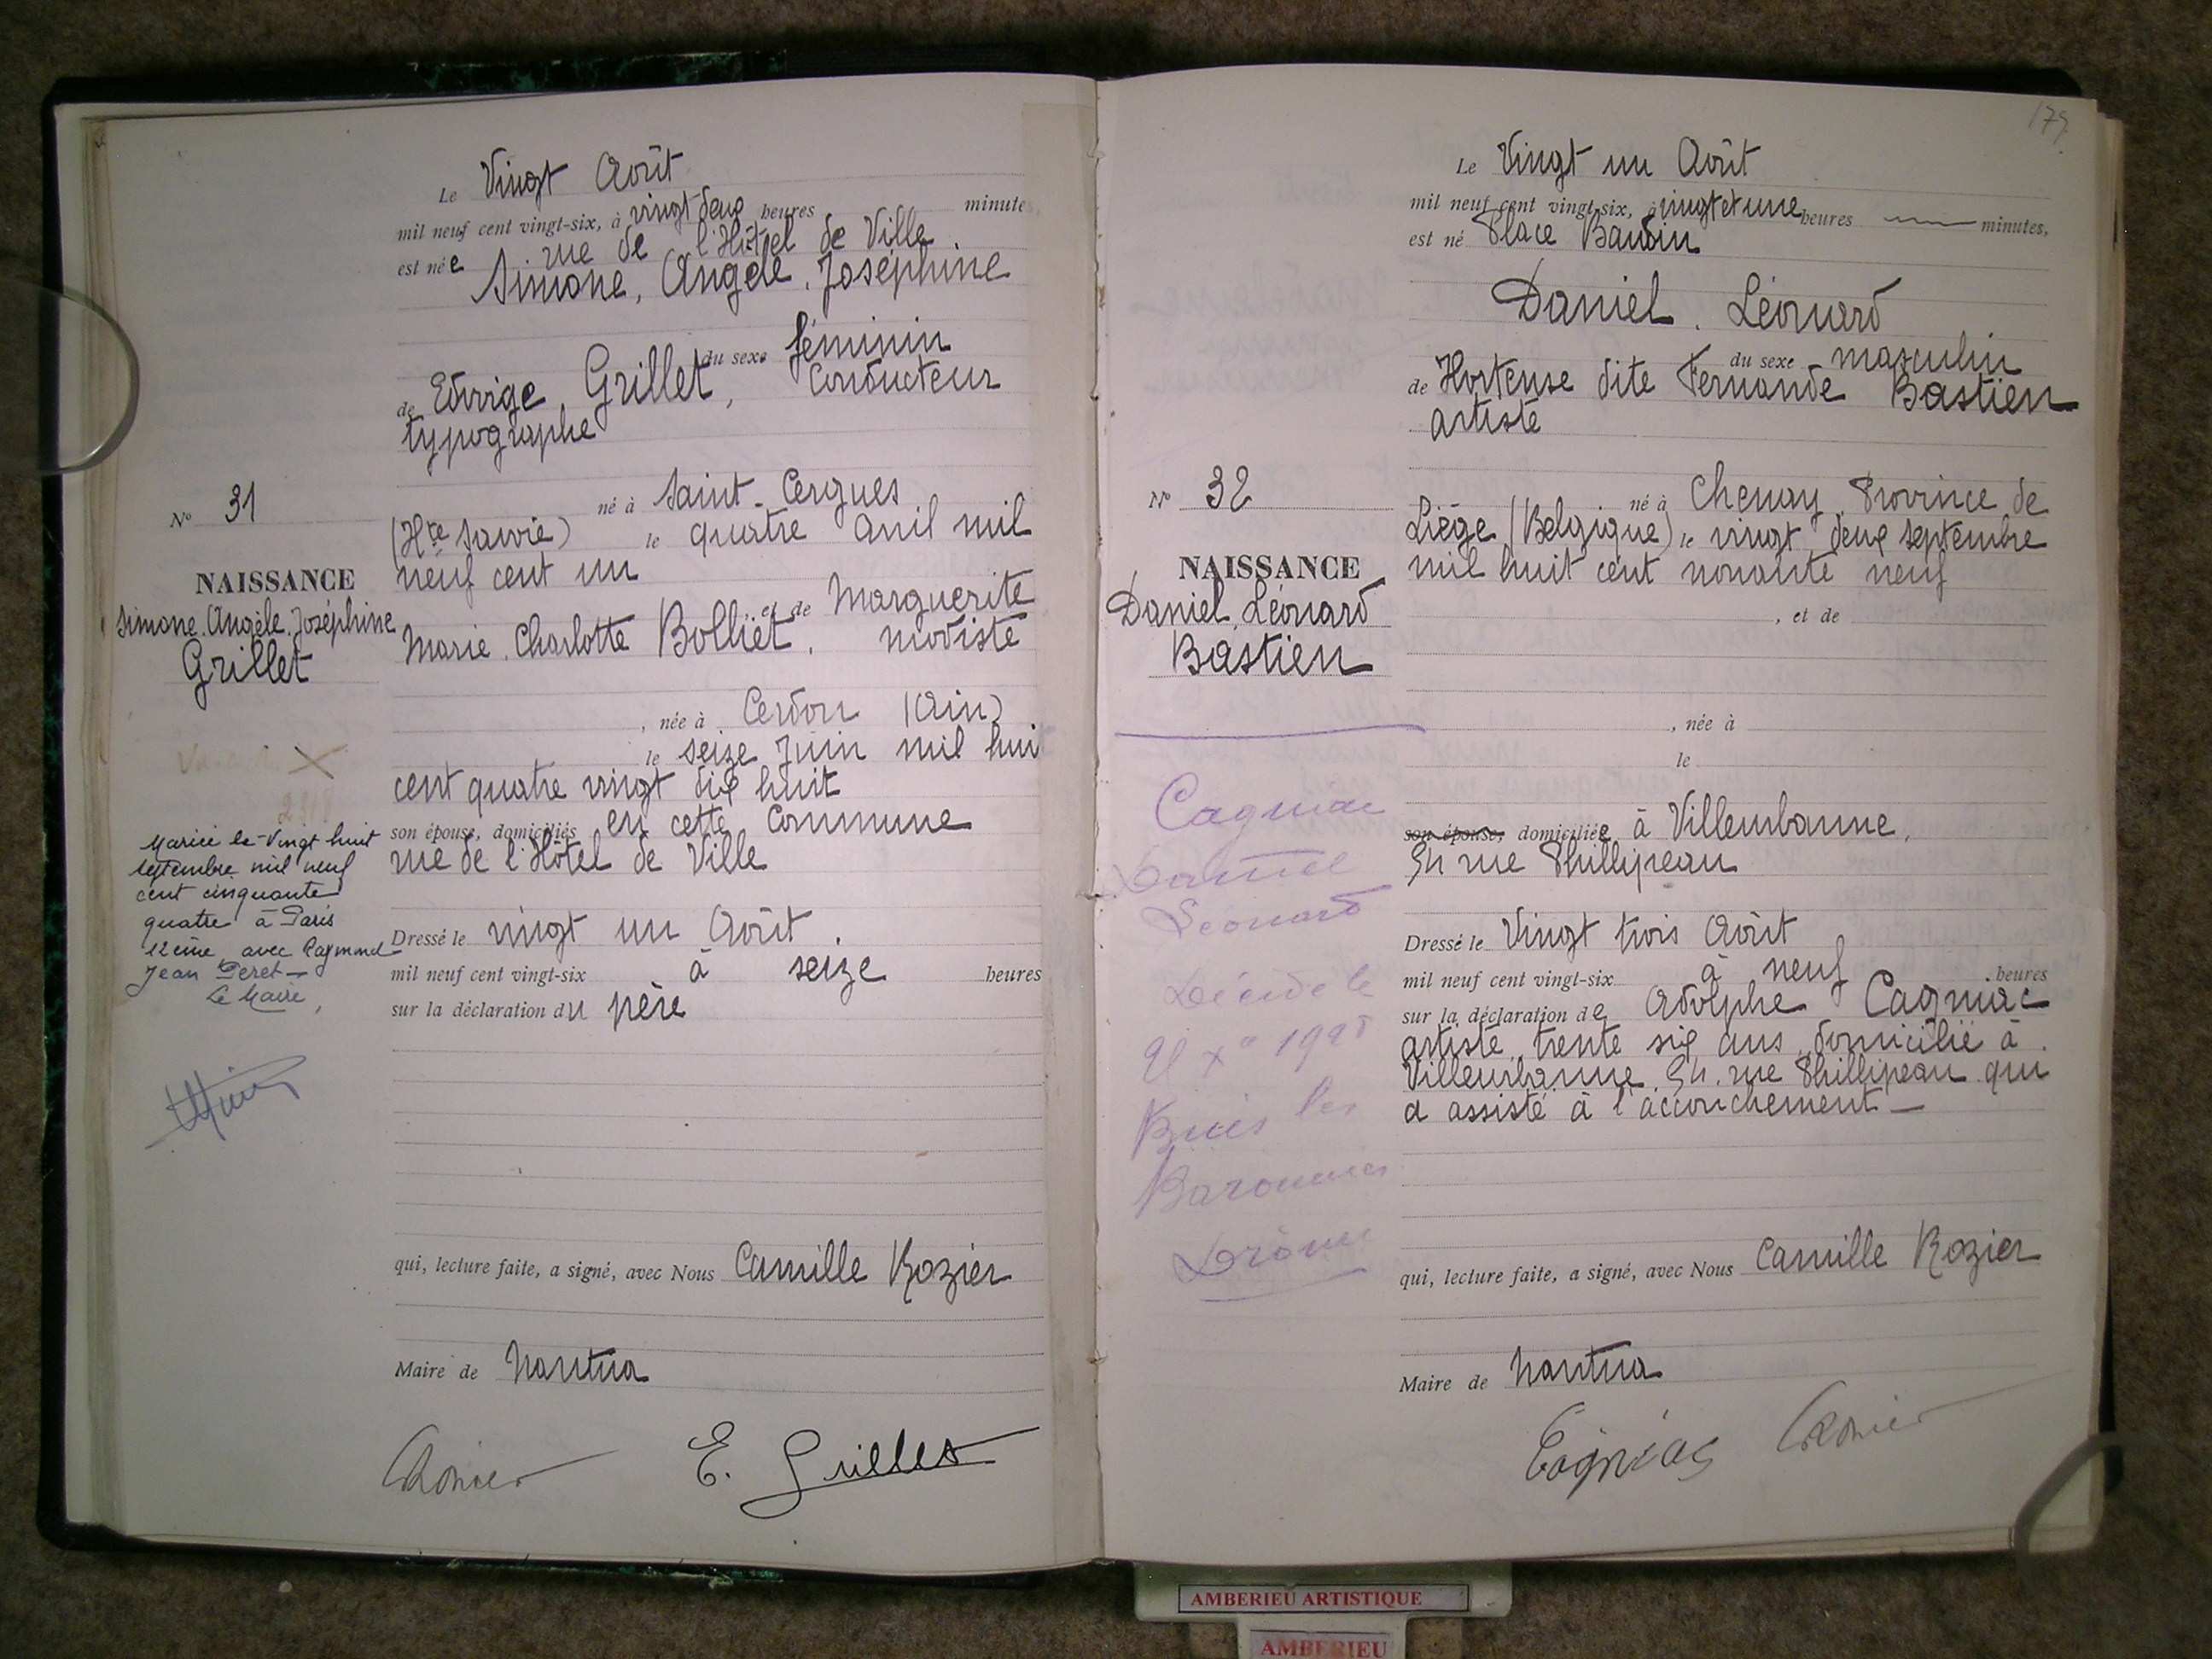 Le Vingt Août
mil neuf cent vingt-six, à vingt deux heures minutes,
est née rue de l'Hôtel de Ville
Simone, Angèle, Joséphine
du sexe féminin
de Edwige Grillet, Conducteur
typographe
né à Saint-Cergues
(Hte Savoie) le quatre avril mil
neuf cent un
et de Marguerite
Marie Charlotte Bolliet, modiste
, née à Cerdon (Ain)
le seize Juin mil huit
cent quatre vingt dix huit
son épouse, domiciliés en cette Commune
rue de l'Hôtel de Ville
Dressé le vingt un Août
mil neuf cent vingt-six à seize heures
sur la déclaration du père
qui, lecture faite, a signé, avec Nous Camille Rozier
Maire de Nantua
E. Grillet
N° 31
NAISSANCE
Simone Angèle Joséphine
Grillet
Mariée le Vingt huit
septembre mil neuf
cent cinquante
quatre à Paris
12ème avec Raymond
Jean Peret—
Le Maire,
179
Le Vingt un Août
mil neuf cent vingt-six, à vingt et une heures minutes,
est né Place Baudin
Daniel, Léonard
du sexe masculin
de Hortense dite Fernande Bastien
artiste
né à Chenay, Province de
Liège (Belgique) le vingt deux septembre
mil huit cent nonante neuf
, et de
, née à
le
son épouse, domiciliée à Villeurbanne,
54 rue Phillipeau
Dressé le Vingt trois Août
mil neuf cent vingt-six à neuf heures
sur la déclaration de Adolphe Cagniac
artiste, trente six ans, domicilié à
Villeurbanne, 54, rue Phillipeau qui
a assisté à l'accouchement—
qui, lecture faite, a signé, avec Nous Camille Rozier
Maire de Nantua
Cagniac
N° 32
NAISSANCE
Daniel, Léonard
Bastien
Cagniac
Daniel
Léonard
Décédé le
Buis les
Baronnies
Drôme
AMBERIEU ARTISTIQUE
AMBERIEU